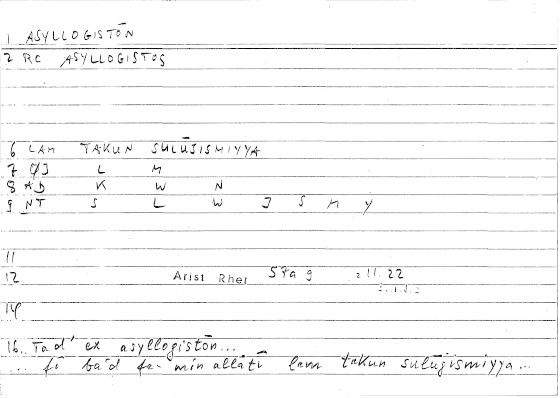 1 ASYLLOGISTŌN
2 RC ASYLLOGISTOS
6 LAM TAKUN SULŪJISMIYYA
7 ØJ L M
8 AD K W N
9 NT S L W J S M Y
11
12 Arist Rhet 57a 9 : 11.22
14
16. Tad' ex asyllogistōn...
... fī ba'd fa- min allātī lam takun sulūjismiyya...